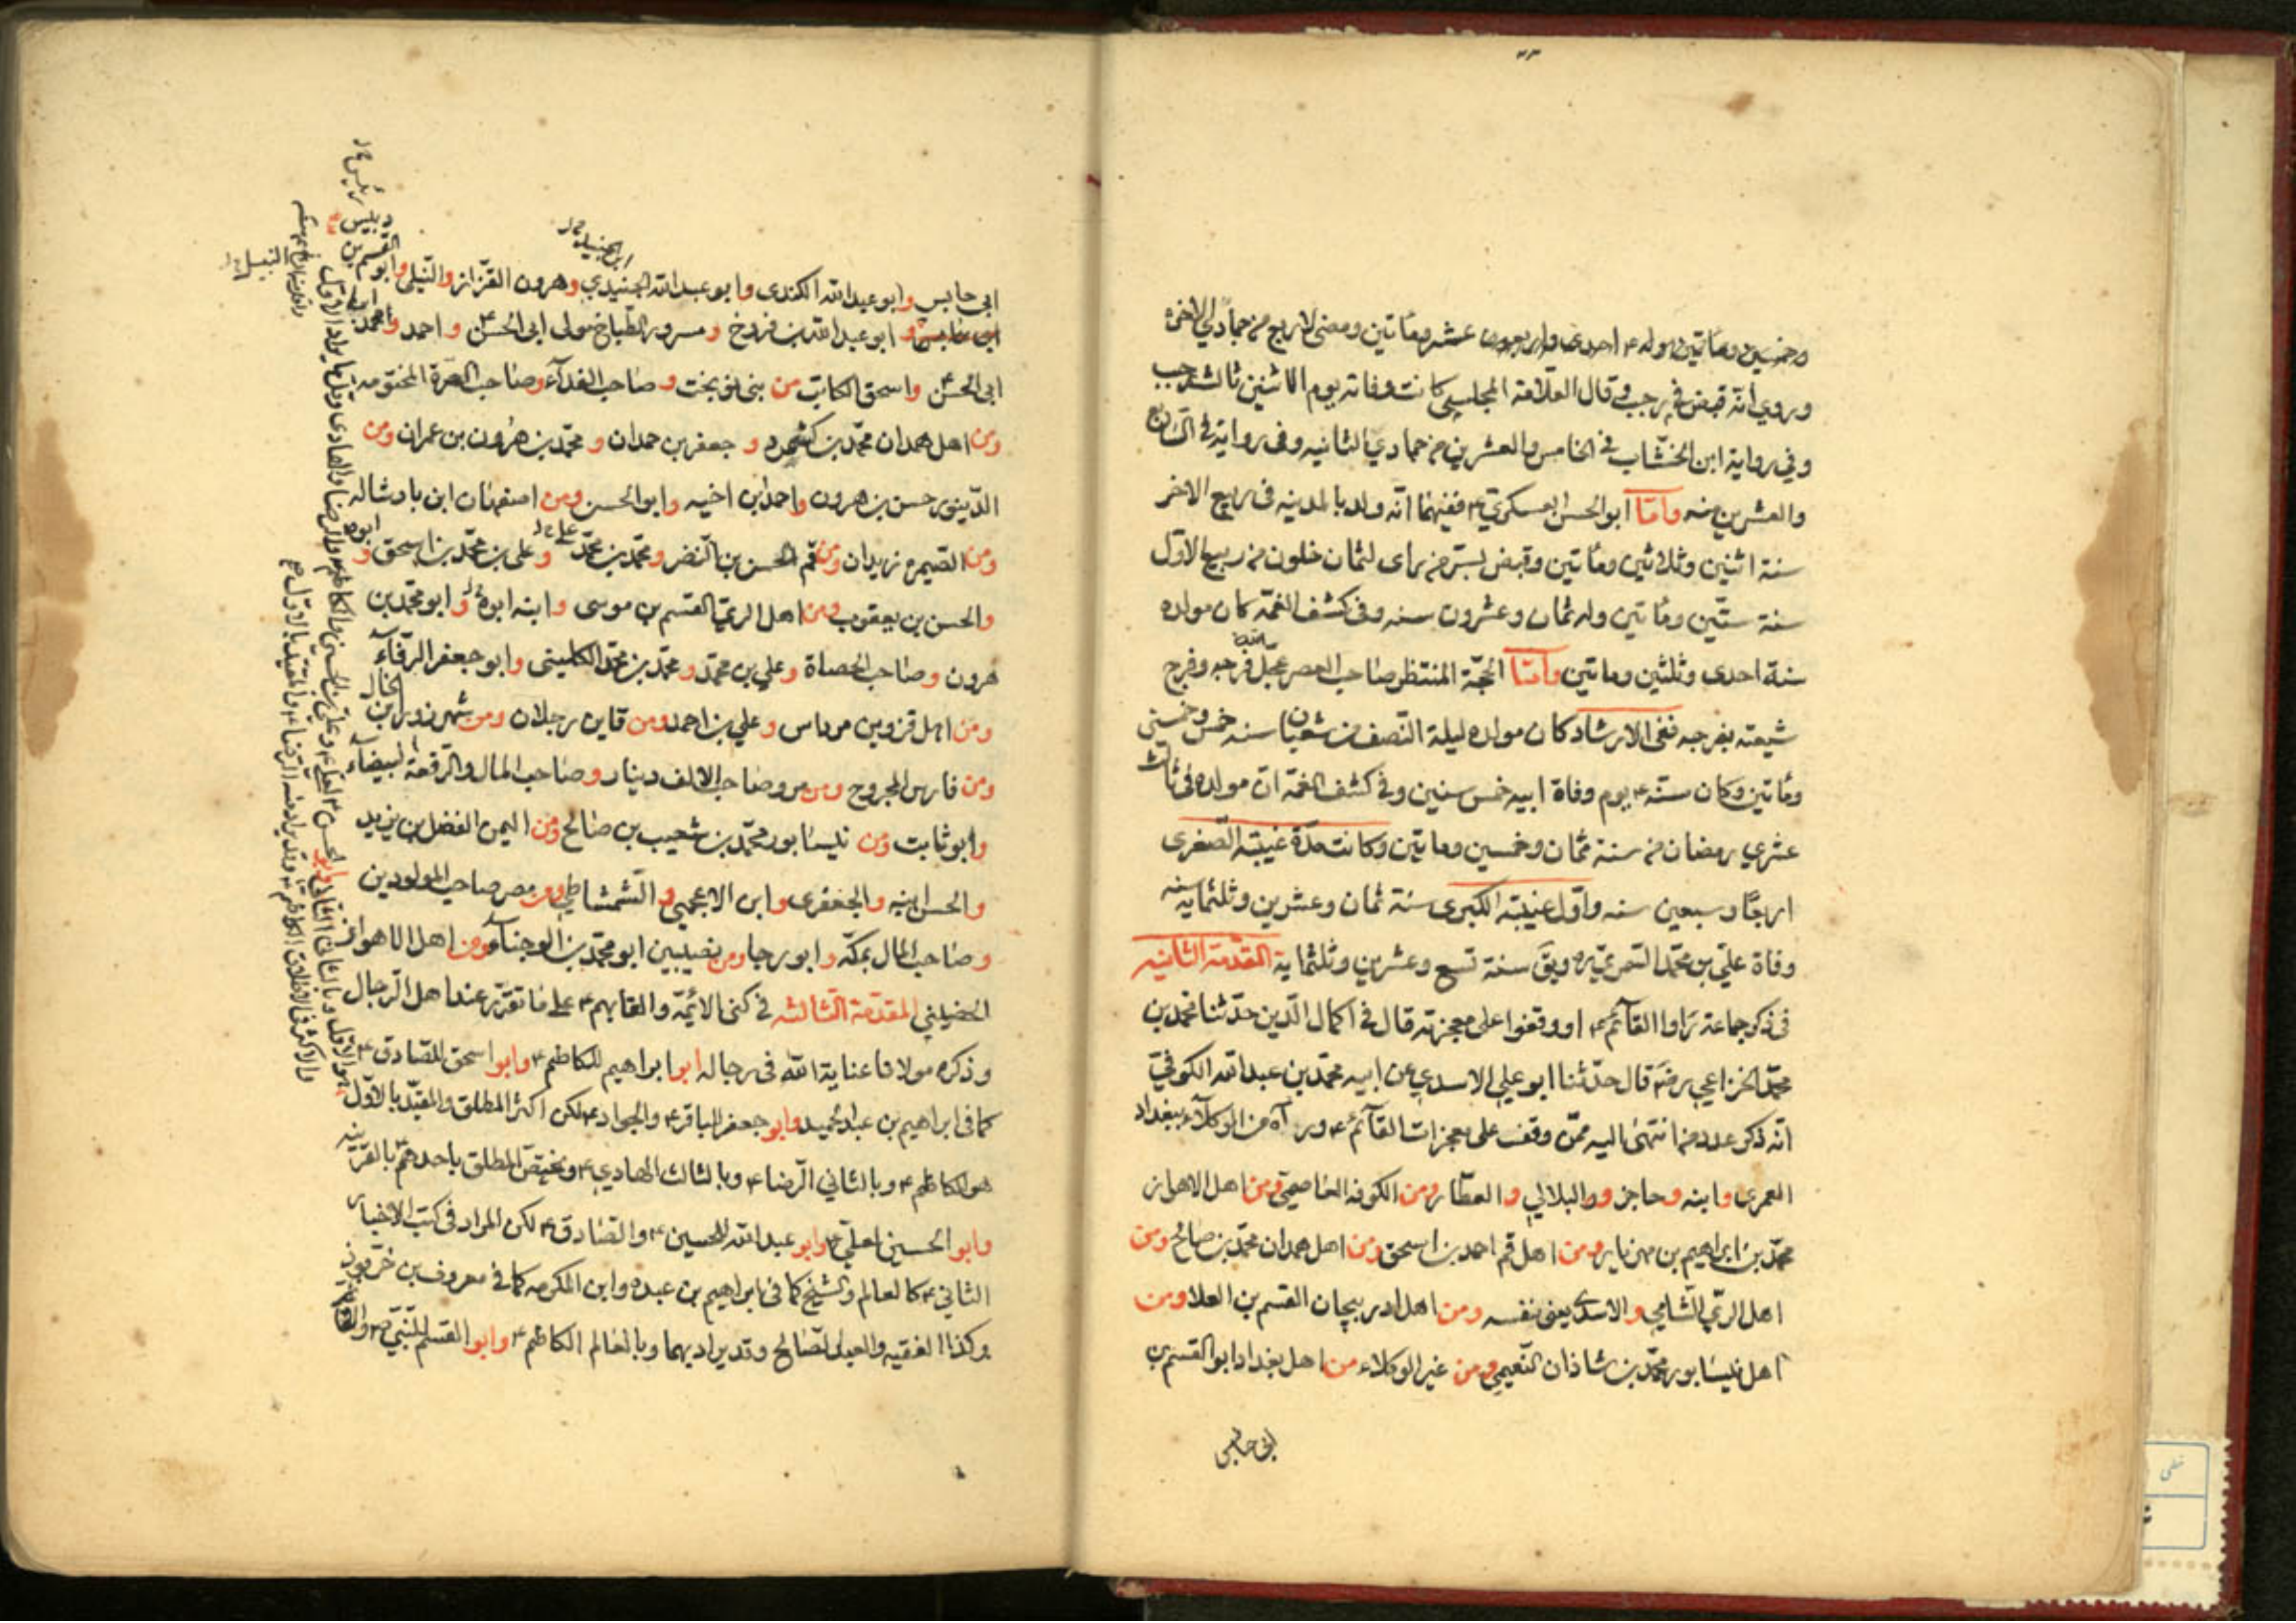 وخمسين ومأتين وله ع احدى واربعون عشر ومأتين ومضى لاربع من جمادي الاخرة
وروي انه قبض في رجب وقال العلامة المجلسي كانت وفاته يوم الاثنين ثالث رجب
وفي رواية ابن الخشاب في الخامس والعشرين من جمادي الثانيه وفي رواية في السابع
والعشرين منه وأمّا ابو الحسن العسكري ع ففيهما انّه ولد بالمدينه في ربيع الاخر
سنة اثنين وثلاثين ومأتين وقبض بسرّ من راى لثمان خلون من ربيع الاوّل
سنة ستّين ومأتين وله ثمان وعشرون سنه وفي كشف الغمّه كان مولده
سنة احدى وثلثين ومأتين وأمّا الحجّة المنتظر صاحب العصر عجّل الله فرجه وفرج
شيعته بفرجه ففي الارشاد كان مولده ليلة النّصف من شعبان سنه خمس وخمسين
ومأتين وكان سنّه ع يوم وفاة ابيه خمس سنين وفي كشف الغمّه انّ مولده في ثالث
عشري رمضان من سنة ثمان وخمسين ومأتين وكانت مدّة غيبته الصّغرى
اربعًا وسبعين سنه واوّل غيبته الكبرى سنة ثمان وعشرين وثلثمايه سنه
وفاة علي بن محمّد السّمري ره وبقي سنة تسع وعشرين وثلثماية المقدّمة الثانيه
في ذكر جماعة رَاوا القآئم ع او وقفوا على معجزته قال في اكمال الدّين حدّثنا محمد بن
محمّد الخزاعي رضه قال حدّثنا ابو علي الاسدي عن ابيه محمّد بن عبدالله الكوفيّ
انّه ذكر عدد من انتهى اليه ممّن وقف على معجزات القآئم ع ورآه من الوكلآء ببغداد
العمرى وابنه وحاجز والبلالي والعطّار ومن الكوفه العاصمي ومن اهل الاهواز
محمّد بن ابراهيم بن مهزيار ومن اهل قم احمد بن اسحق ومن اهل همدان محمّد بن صالح ومن
اهل الرّي الشّامي والاسدي يعني نفسه ومن اهل ادربيجان القسم بن العلا ومن
اهل نيسابور محمّد بن شاذان النّعيمي ومن غير الوكلاء من اهل بغداد ابو القسم بن
ابي حابس
ابي حابس وابو عبدالله الكندى وابو عبدالله الجنيدي وهرون القزّاز والنّيلي وابو القسم بن
دبيس
وابو عبدالله بن فروخ ومسرور الطّباخ مولى ابي الحسن ع واحمد ومحمد ابنا
ابي الحسن واسحق الكاتب من بني نوبخت وصاحب الفدآء وصاحب الصرة المختومه
ومن اهل همدان محمّد بن كشمرد وجعفر بن حمدان ومحمّد بن هرون بن عمران ومن
الدّينور حسن بن هرون واحمد بن اخيه وابو الحسن ومن اصفهان ابن بادشاله
ومن الصّيمره زيدان ومن قم الحسن بن النّضر ومحمّد بن محمّد وعلي بن محمّد بن اسحق وابوه
والحسن بن يعقوب ومن اهل الريّ القسم بن موسى وابنه وابو محمّد بن
هرون وصاحب الحصاة وعلي بن محمّد ومحمّد بن محمّد الكلينى وابو جعفر الرفّآء
ومن اهل قزوين مرداس وعلي بن احمد ومن قاين رجلان ومن شهرزور ابن الخال
ومن فارس المجروح ومن مرو صاحب الالف دينار وصاحب المال والرّقعة البيضآء
وابو ثابت ومن نيسابور محمّد بن شعيب بن صالح ومن اليمن الفضل بن يزيد
والحسن ابنه والجعفرى وابن الاعجمي والشّمشاطي ومن مصر صاحب المولودين
وصاحب المال بمكّه وابو رجا ومن نصيبين ابو محمّد بن الوجنآء ومن اهل الاهواز
الحضيني المقدّمة الثالثه في كنى الائمّه والقابهم ع على ما تقرّر عند اهل الرّجال
وذكره مولانا عناية الله في رجاله ابو ابراهيم للكاظم ع وابو اسحق للصّادق ع
كما في ابراهيم بن عبدالحميد وابو جعفر الباقر ع والجواد ع لكن اكثر المطلق والمقيّد بالاوّل
هو الكاظم ع وبالثاني الرّضا ع وبالثالث الهادي ع ويختصّ المطلق باحدهم بالقرينه
وابو الحسين لعلي ع وابو عبدالله للحسين ع والصّادق ع لكن المراد في كتب الاخبار
الثاني ع كالعالم والشيخ كما في ابراهيم بن عبده وابن المكرمه كما في معروف بن خربوذ
وكذا الفقيه والعبد الصّالح وقد يراد بهما وبالعالم الكاظم ع وابو القسم للنّبي ص والقائم